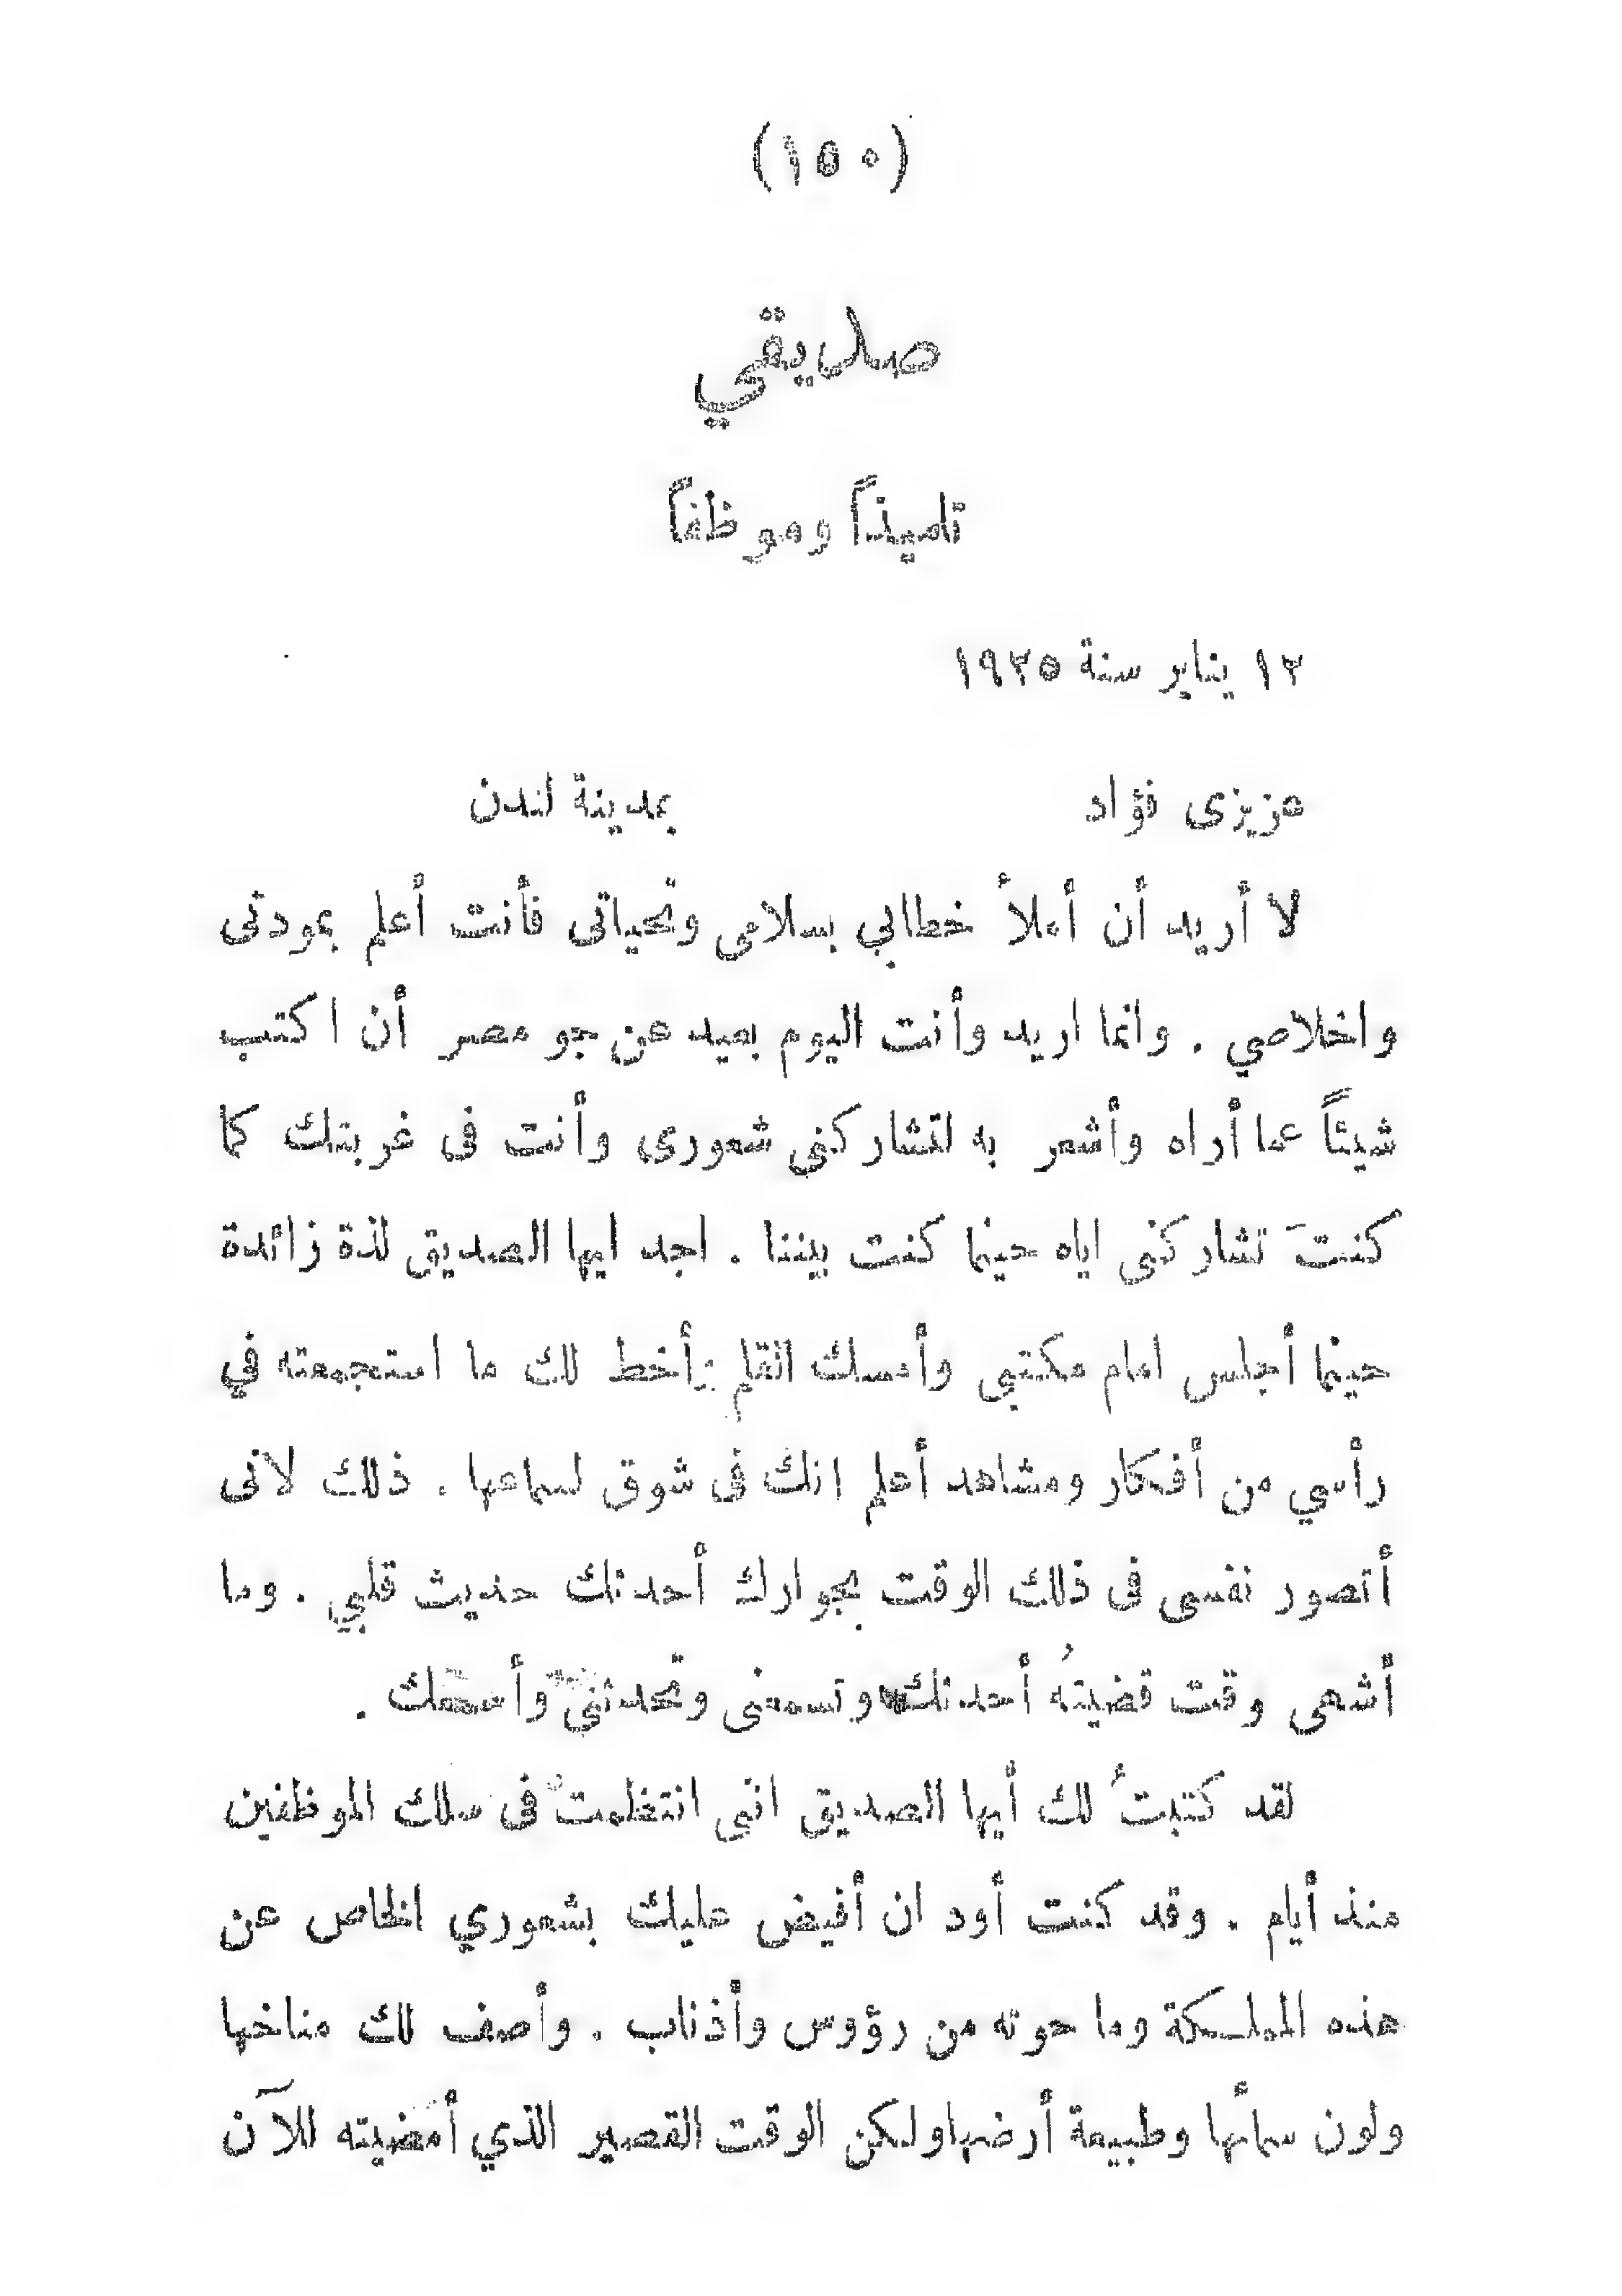 (١٥٠)
صديقي
تلميذاً وموظفاً
١٢ يناير سنة ١٩٢٥
عزيزى فؤاد بمدينة لندن
لا أريد أن أملأ خطابي بسلامى وتحياتى فأنت أعلم بمودتى
واخلاصي . وانما اريد وأنت اليوم بعيد عن جو مصر أن اكتب
شيئاً عما أراه وأشعر به لتشاركنى شعورى وأنت فى غربتك كما
كنتَ تشاركنى اياه حينما كنت بيننا . اجد ايها الصديق لذة زائدة
حينما أجلس امام مكتبى وأمسك القلم وأخط لك ما استجمعته في
رأسي من أفكار ومشاهد أعلم انك فى شوق لسماعها . ذلك لانى
أتصور نفسى فى ذلك الوقت بجوارك أحدثك حديث قلبي . وما
أشهى وقت قضيتهُ أحدثك وتسمعنى وتحدثنى وأسمعك .
لقد كتبتُ لك أيها الصديق انى انتظمتُ فى سلك الموظفين
منذ أيام . وقد كنت أود ان أفيض عليك بشعوري الخاص عن
هذه المملكة وما حوته من رؤوس وأذناب . وأصف لك مناخها
ولون سمائها وطبيعة أرضها ولكن الوقت القصير الذي أمضيته للآن